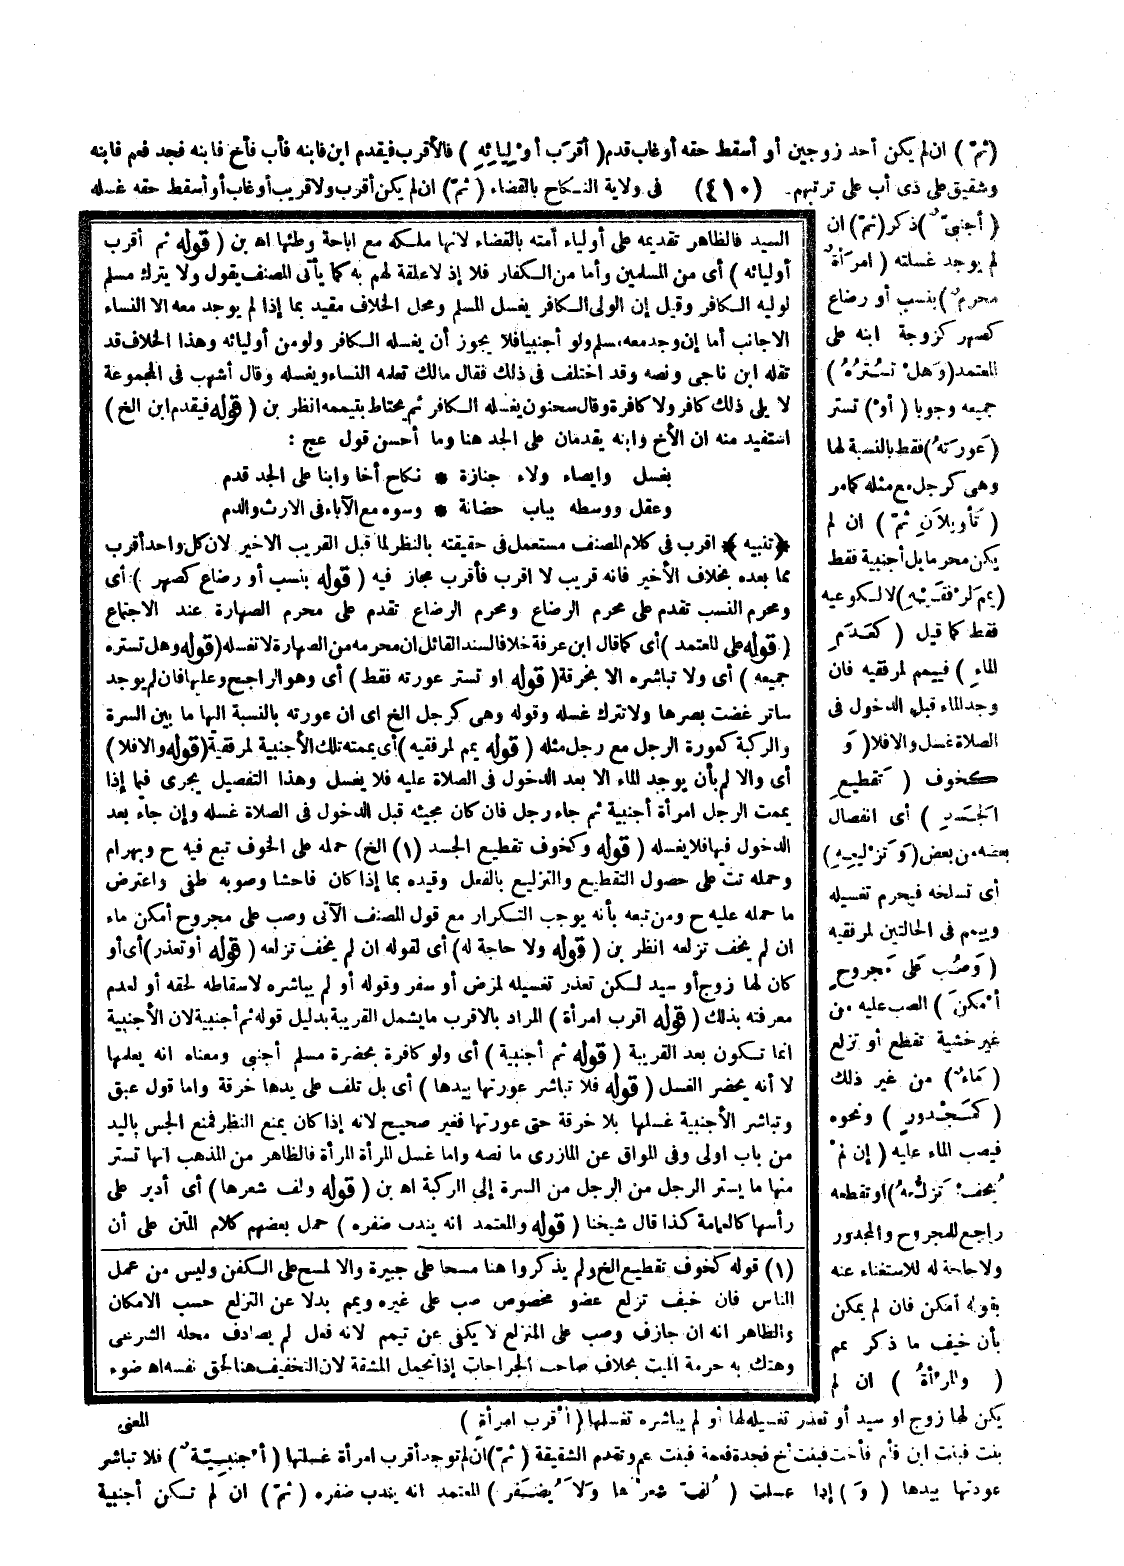 (ثمّ) ان لم يكن أحد زوجين أو أسقط حقه أو غاب قدم (أقرَب أوْليائِهِ) فالأقرب فيقدم ابن فابنه فأب فأخ فابنه فجد فعم فابنه
وشقيق على ذى أب على ترتبهم. (٤١٠) فى ولاية النكاح بالقضاء (ثمّ) ان لم يكن أقرب ولا قريب أو غاب أو أسقط حقه غسله
(أجنبىّ) ذكر (ثمّ) ان
لم يوجد غسلته (امرَأة
محرم) بنسب أو رضاع
كصهر كزوجة ابنه على
المعتمد (وَهلْ تسْترُهُ)
جميعه وجوبا (أوْ) تستر
(عَورَتهُ) فقط بالنسبة لها
وهى كرجل مع مثله كما مر
(تَأويلاَنِ ثمّ) ان لم
يكن محرما بل أجنبية فقط
(يمم لمرْفقَيْهِ) لا لكوعيه
فقط كما قيل (كعَدَمِ
الماءِ) فييمم لمرفقيه فان
وجد الماء قبل الدخول فى
الصلاة غسل والا فلا (وَ
كخوف (تَقطيعِ
الجَسَدِ) أى انفصال
بعضه من بعض (وَتزْليعِهِ)
أى تسلخه فيحرم تغسيله
وييمم فى الحالتين لمرفقيه
(وَصُب عَلى مَجروحٍ
أمْكنَ) الصب عليه من
غير خشية تقطع أو تزلع
(مَاء) من غير ذلك
(كمَجْدورٍ) ونحوه
فيصب الماء عليه (إن لمْ
يُخَفْ تزَلّعهُ) أو تقطعه
راجع للمجروح والمجدور
ولا حاجة له للاستغناء عنه
بقوله أمكن فان لم يمكن
بأن خيف ما ذكر يمم
(والمرْأةُ) ان لم
يكن لها زوج او سيد أو تعذر تغسيله لها أو لم يباشره تغسلها (أقْرب امرأةٍ)
بنت فبنت ابن فأم فأخت فبنت أخ فجدة فعمة فبنت عم وتقدم الشقيقة (ثمّ) ان لم توجد أقرب امرأة غسلتها (أجْنبيّة) فلا تباشر
عورتها بيدها (وَ) إذا غسلت (لُفّ شعرْها وَلاَ يُضفَر) المعتمد انه يندب ضفره (ثمّ) ان لم تكن أجنبية
السيد فالظاهر تقديمه على أولياء أمته بالقضاء لانها ملكه مع اباحة وطئها اه بن (قوله ثم أقرب
أوليائه) أى من المسلمين وأما من الكفار فلا إذ لا علقة لهم به كما يأتى المصنف يقول ولا يترك مسلم
لوليه الكافر وقيل إن الولى الكافر يغسل المسلم ومحل الخلاف مقيد بما إذا لم يوجد معه الا النساء
الاجانب أما إن وجد معه مسلم ولو أجنبيا فلا يجوز أن يغسله الكافر ولو من أوليائه وهذا الخلاف قد
نقله ابن ناجى ونصه وقد اختلف فى ذلك فقال مالك تعلمه النساء ويغسله وقال أشهب فى المجموعة
لا يلى ذلك كافر ولا كافرة وقال سحنون يغسله الكافر ثم يحتاط بتيممه انظر بن (قوله فيقدم ابن الخ)
استفيد منه ان الأخ وابنه يقدمان على الجد هنا وما أحسن قول عج :
بغسل وايصاء ولاء جنازة * نكاح أخا وابنا على الجد قدم
وعقل ووسطه بباب حضانة * وسوه مع الآباء فى الارث والدم
﴿تنبيه﴾ اقرب فى كلام المصنف مستعمل فى حقيقته بالنظر لما قبل القريب الاخير لان كل واحد أقرب
مما بعده بخلاف الأخير فانه قريب لا اقرب فأقرب مجاز فيه (قوله بنسب أو رضاع كصهر) أى
ومحرم النسب تقدم على محرم الرضاع ومحرم الرضاع تقدم على محرم الصهارة عند الاجتماع
(قوله على المعتمد) أى كما قال ابن عرفة خلافا لسند القائل ان محرمه من الصهارة لا تغسله (قوله وهل تستره
جميعه) أى ولا تباشره الا بخرقة (قوله او تستر عورته فقط) أى وهو الراجح وعليها فان لم يوجد
ساتر غضت بصرها ولا تترك غسله وقوله وهى كرجل الخ اى ان عورته بالنسبة اليها ما بين السرة
والركبة كعورة الرجل مع رجل مثله (قوله يمم لمرفقيه) أى يممته تلك الأجنبية لمرفقية (قوله والا فلا)
أى والا لم بأن يوجد الماء الا بعد الدخول فى الصلاة عليه فلا يغسل وهذا التفصيل يجرى فيما إذا
يممت الرجل امرأة أجنبية ثم جاء رجل فان كان مجيئه قبل الدخول فى الصلاة غسله وإن جاء بعد
الدخول فيها فلا يغسله (قوله وكخوف تقطيع الجسد (١) الخ) حمله على الخوف تبع فيه ح وبهرام
وحمله تت على حصول التقطيع والتزليع بالفعل وقيده بما إذا كان فاحشا وصوبه طفى واعترض
ما حمله عليه ح ومن تبعه بأنه يوجب التكرار مع قول المصنف الآتى وصب على مجروح أمكن ماء
ان لم يخف تزلعه انظر بن (قوله ولا حاجة له) أى لقوله ان لم يخف تزلعه (قوله أو تعذر) أى أو
كان لها زوج أو سيد لكن تعذر تغسيله لمرض أو سفر وقوله أو لم يباشره لاسقاطه لحقه أو لعدم
معرفته بذلك (قوله اقرب امرأة) المراد بالاقرب ما يشمل القريبة بدليل قوله ثم أجنبية لان الأجنبية
انما تكون بعد القريبة (قوله ثم أجنبية) أى ولو كافرة بحضرة مسلم أجنبى ومعناه انه يعلمها
لا أنه يحضر الغسل (قوله فلا تباشر عورتها بيدها) أى بل تلف على يدها خرقة واما قول عبق
وتباشر الأجنبية غسلها بلا خرقة حتى عورتها فغير صحيح لانه إذا كان يمنع النظر فمنع الجس باليد
من باب اولى وفى المواق عن المازرى ما نصه واما غسل المرأة المرأة فالظاهر من المذهب انها تستر
منها ما يستر الرجل من الرجل من السرة إلى الركبة اه بن (قوله ولف شعرها) أى أدير على
رأسها كالعمامة كذا قال شيخنا (قوله والمعتمد انه يندب ضفره) حمل بعضهم كلام المتن على أن
(١) قوله كخوف تقطيع الخ ولم يذكروا هنا مسحا على جبيرة والا لمسح على الكفن وليس من عمل
الناس فان خيف تزلع عضو مخصوص صب على غيره ويمم بدلا عن التزلع حسب الامكان
والظاهر انه ان جازف وصب على المتزلع لا يكفى عن تيمم لانه فعل لم يصادف محله الشرعى
وهتك به حرمة الميت بخلاف صاحب الجراحات إذا تحمل المشقة لان التخفيف هنا لحق نفسه اه ضوء
المعنى